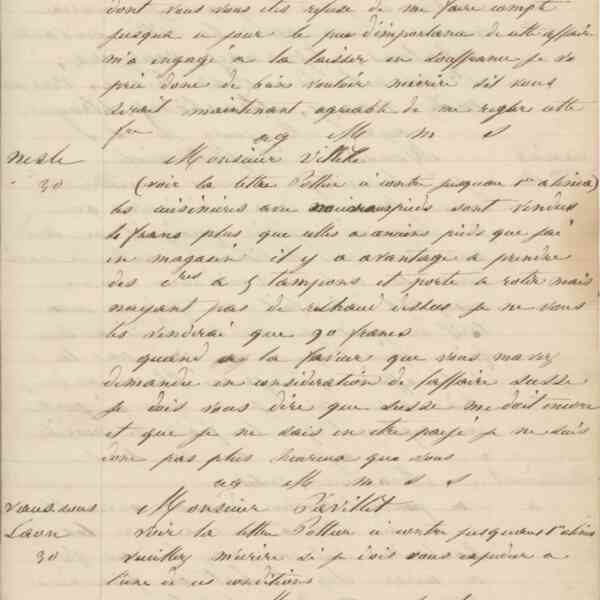 dont vous vous etes refusé de me faire compte
jusqua ce jour le peu d'importance de cette affaire
m'a engagé a la laisser en souffrance je vs
prie donc de bien vouloir mecrire sil vous
serait maintenant agreable de me regler cette
fre
ag M m s
Nesle Monsieur Villele
30 (voir la lettre Pottier ci contre jusquau 1er alinéa)
les cuisinieres avec nouveaux pieds sont vendues
le franc plus que celles a anciens pieds que j'ai
en magasin il y a avantage a prendre
des cres a 5 tampons et porte a rotir mais
nayant pas de rechaud dessus je ne vous
les venderai que 90 francs
quand a la faveur que vous mavez
demandée en consideration de l'affaire Susse
je dois vous dire que Susse me doit encore
et que je ne sais en etre payé je ne suis
donc pas plus heureux que vous
ag M m s s
Vaux sous Monsieur Pévillet
Laon voir la lettre Pottier ci contre jusquau 1er alinea
30 veuillez mecrire si je dois vous expedier a
l'une de ces conditions